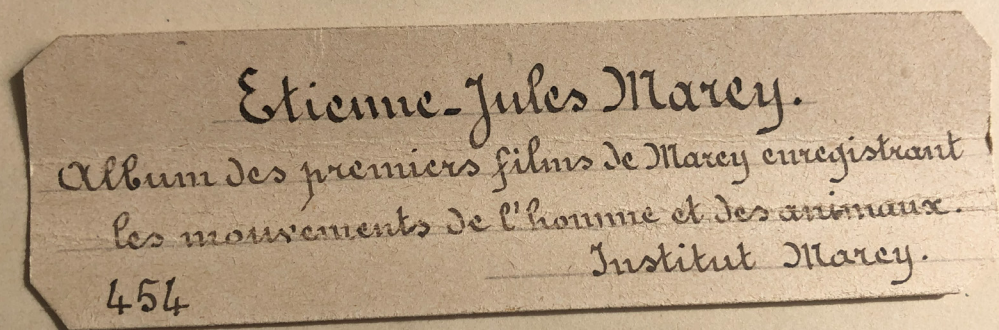 Etienne-Jules Marey.
Album des premiers films de Marey enregistrant
les mouvements de l'homme et des animaux.
Institut Marey.
454